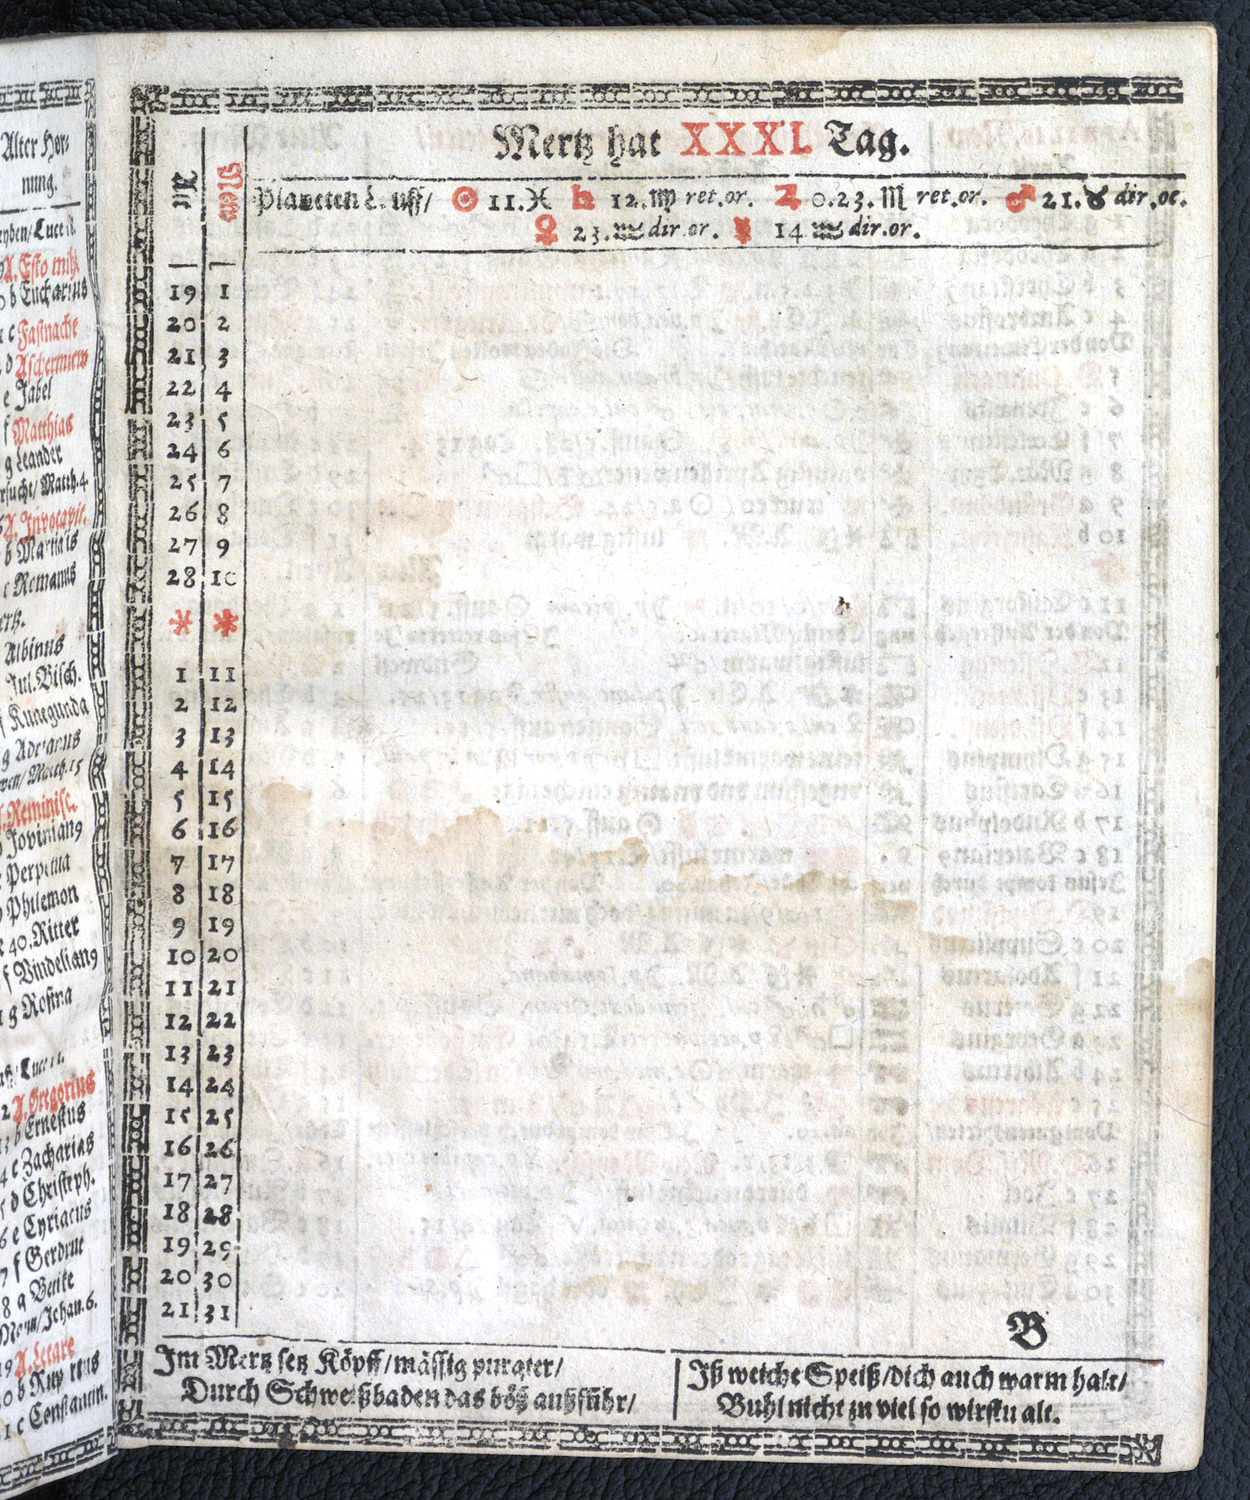 Alter Hor-
nung.
A. Esto mihi
b Eucharius
c Fastnacht
d Aschermitw
e Jabel
f Matthias
g Leander
A. Invocavit.
b Martialis
c Romanus
Albinus
Jul. Bisch.
f Kunegunda
g Adrianus
Reminisc.
Perpetua
Philemon
40. Ritter
g Rosina
A. Gregorius
b Ernestus
c Zacharias
d Christoph.
e Cyriacus
f Gerdrut
A. Letare
c Constantin.
Mertz hat XXXI. Tag.
Planeten Lauff/ ☉ 11.♓ ♄ 12.♍ ret.or. ♃ 0.23.♏ ret.or. ♂ 21.♉ dir.oc.
♀ 23.♒ dir.or. ☿ 14 ♒ dir.or.
19 1
20 2
21 3
22 4
23 5
24 6
25 7
26 8
27 9
28 10
* *
1 11
2 12
3 13
4 14
5 15
6 16
7 17
8 18
9 19
10 20
11 21
12 22
13 23
14 24
15 25
16 26
17 27
18 28
19 29
20 30
21 31
B
Im Mertz setz Köpff/mässig purgier/
Durch Schweißbaden das böß außführ/
Iß weiche Speiß/dich auch warm halt/
Buhl nicht zu viel so wirstu alt.